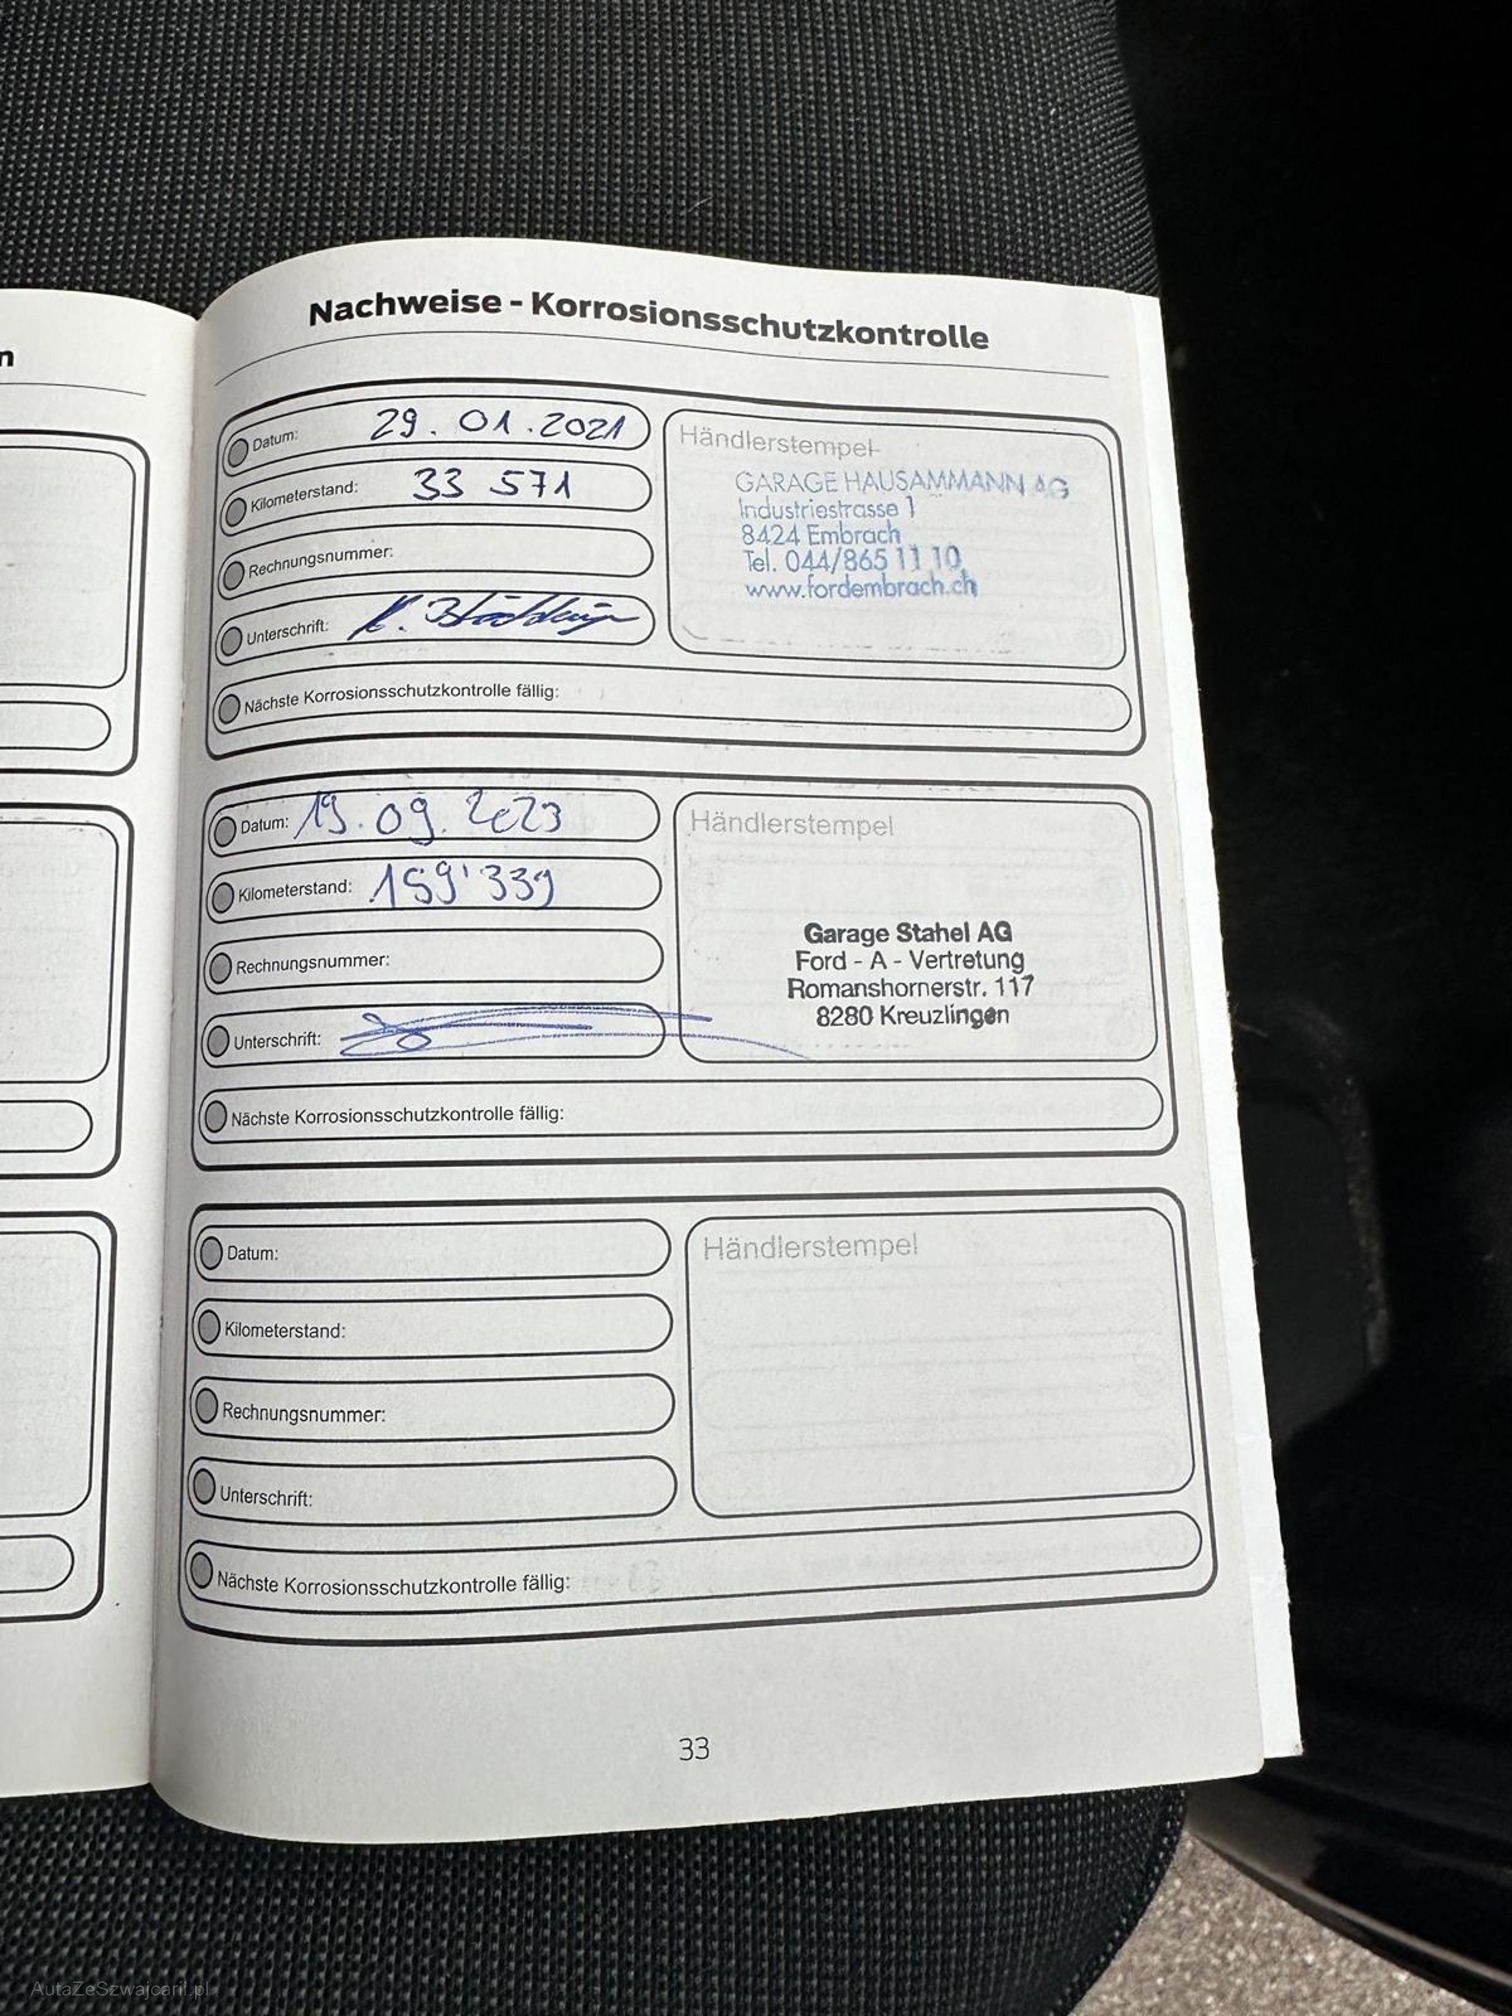 n
Nachweise - Korrosionsschutzkontrolle
Datum: 29.01.2021
Kilometerstand: 33 571
Rechnungsnummer:
Unterschrift:
Nächste Korrosionsschutzkontrolle fällig:
Händlerstempel
GARAGE HAUSAMMANN AG
Industriestrasse 1
8424 Embrach
Tel. 044/865 11 10
www.fordembrach.ch
Datum: 19.09.2023
Kilometerstand: 159'339
Rechnungsnummer:
Unterschrift:
Nächste Korrosionsschutzkontrolle fällig:
Händlerstempel
Garage Stahel AG
Ford - A - Vertretung
Romanshornerstr. 117
8280 Kreuzlingen
Datum:
Kilometerstand:
Rechnungsnummer:
Unterschrift:
Nächste Korrosionsschutzkontrolle fällig:
Händlerstempel
33
AutaZeSzwajcarii.pl